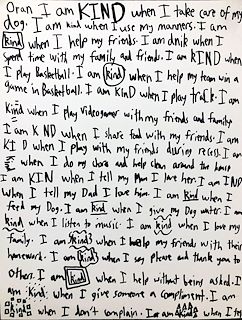 Oran I am KIND when I take care of my
dog. I am kind when I use my manners. I am
kind when I help my friends. I am dnik when I
spend time with my family and friends. I am KIND when
I play Basketball. I am kind when I help my team win a
game in Basketball. I am Kind when I play track. I am
kind when I play videogames with my friends and family.
I am KIND when I share food with my friends. I am
KIND when I play with my friends during recess. I am
when I do my chores and help clean around the house
I am KIN when I tell my Mom I love her. I am IND
When I tell my Dad I love him. I am kind when I
feed my Dog. I am kind when I give my Dog water. I am
kind when I listen to music. I am kind when I love my
family. I am kind when I help my friends with their
homework. I am kind when I say please and thank you to
others. I am kind when I help without being asked. I
am kind when I give someone a compliment. I am
when I don't complain. I am when I